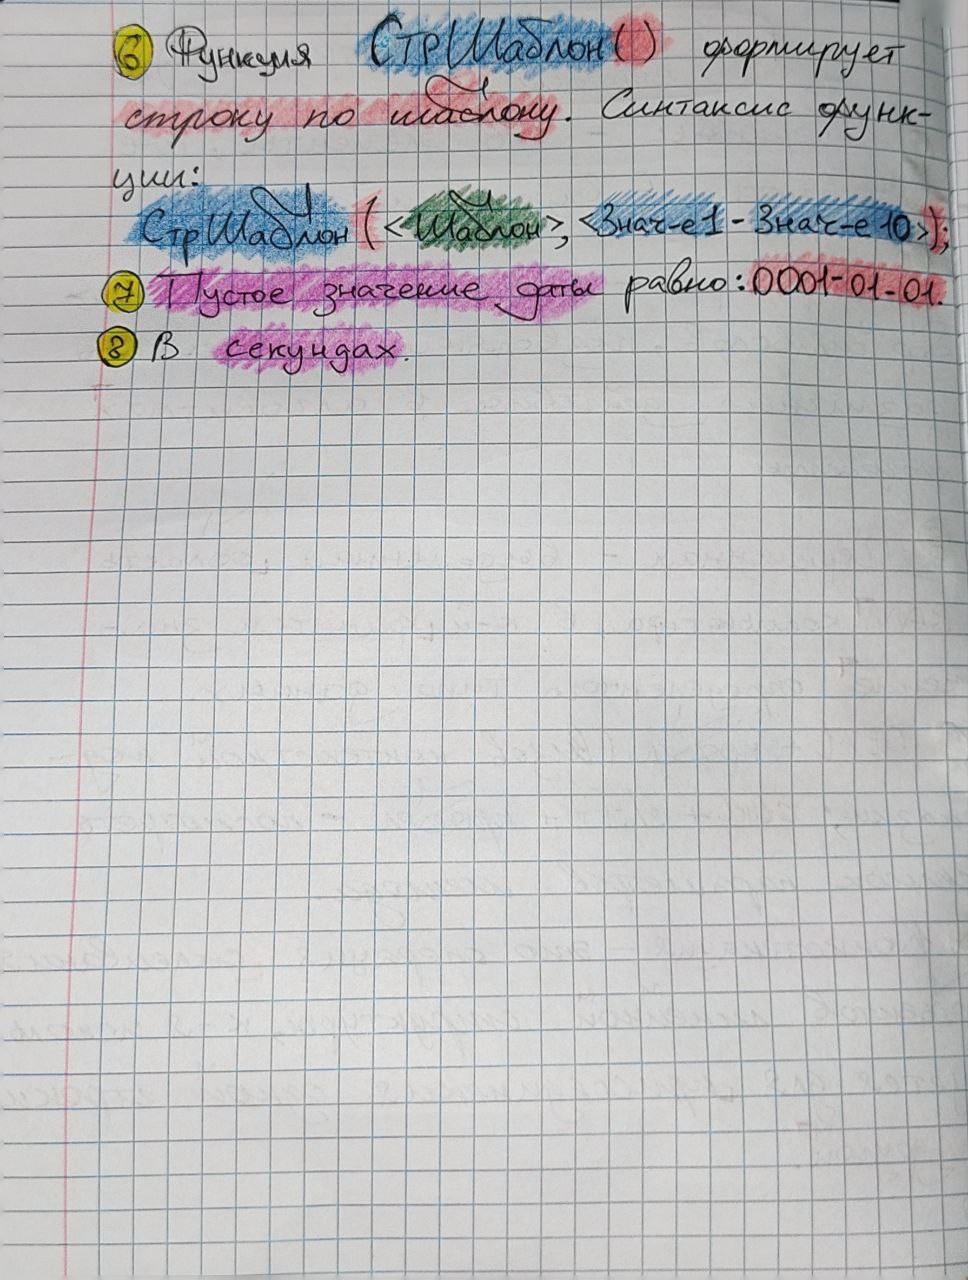 6 Функция СтрШаблон() формирует
строку по шаблону. Синтаксис функ-
ции:
СтрШаблон(<Шаблон>, <Знач-е1 - Знач-е10>);
7 Пустое значение даты равно: 0001-01-01.
8 В секундах.